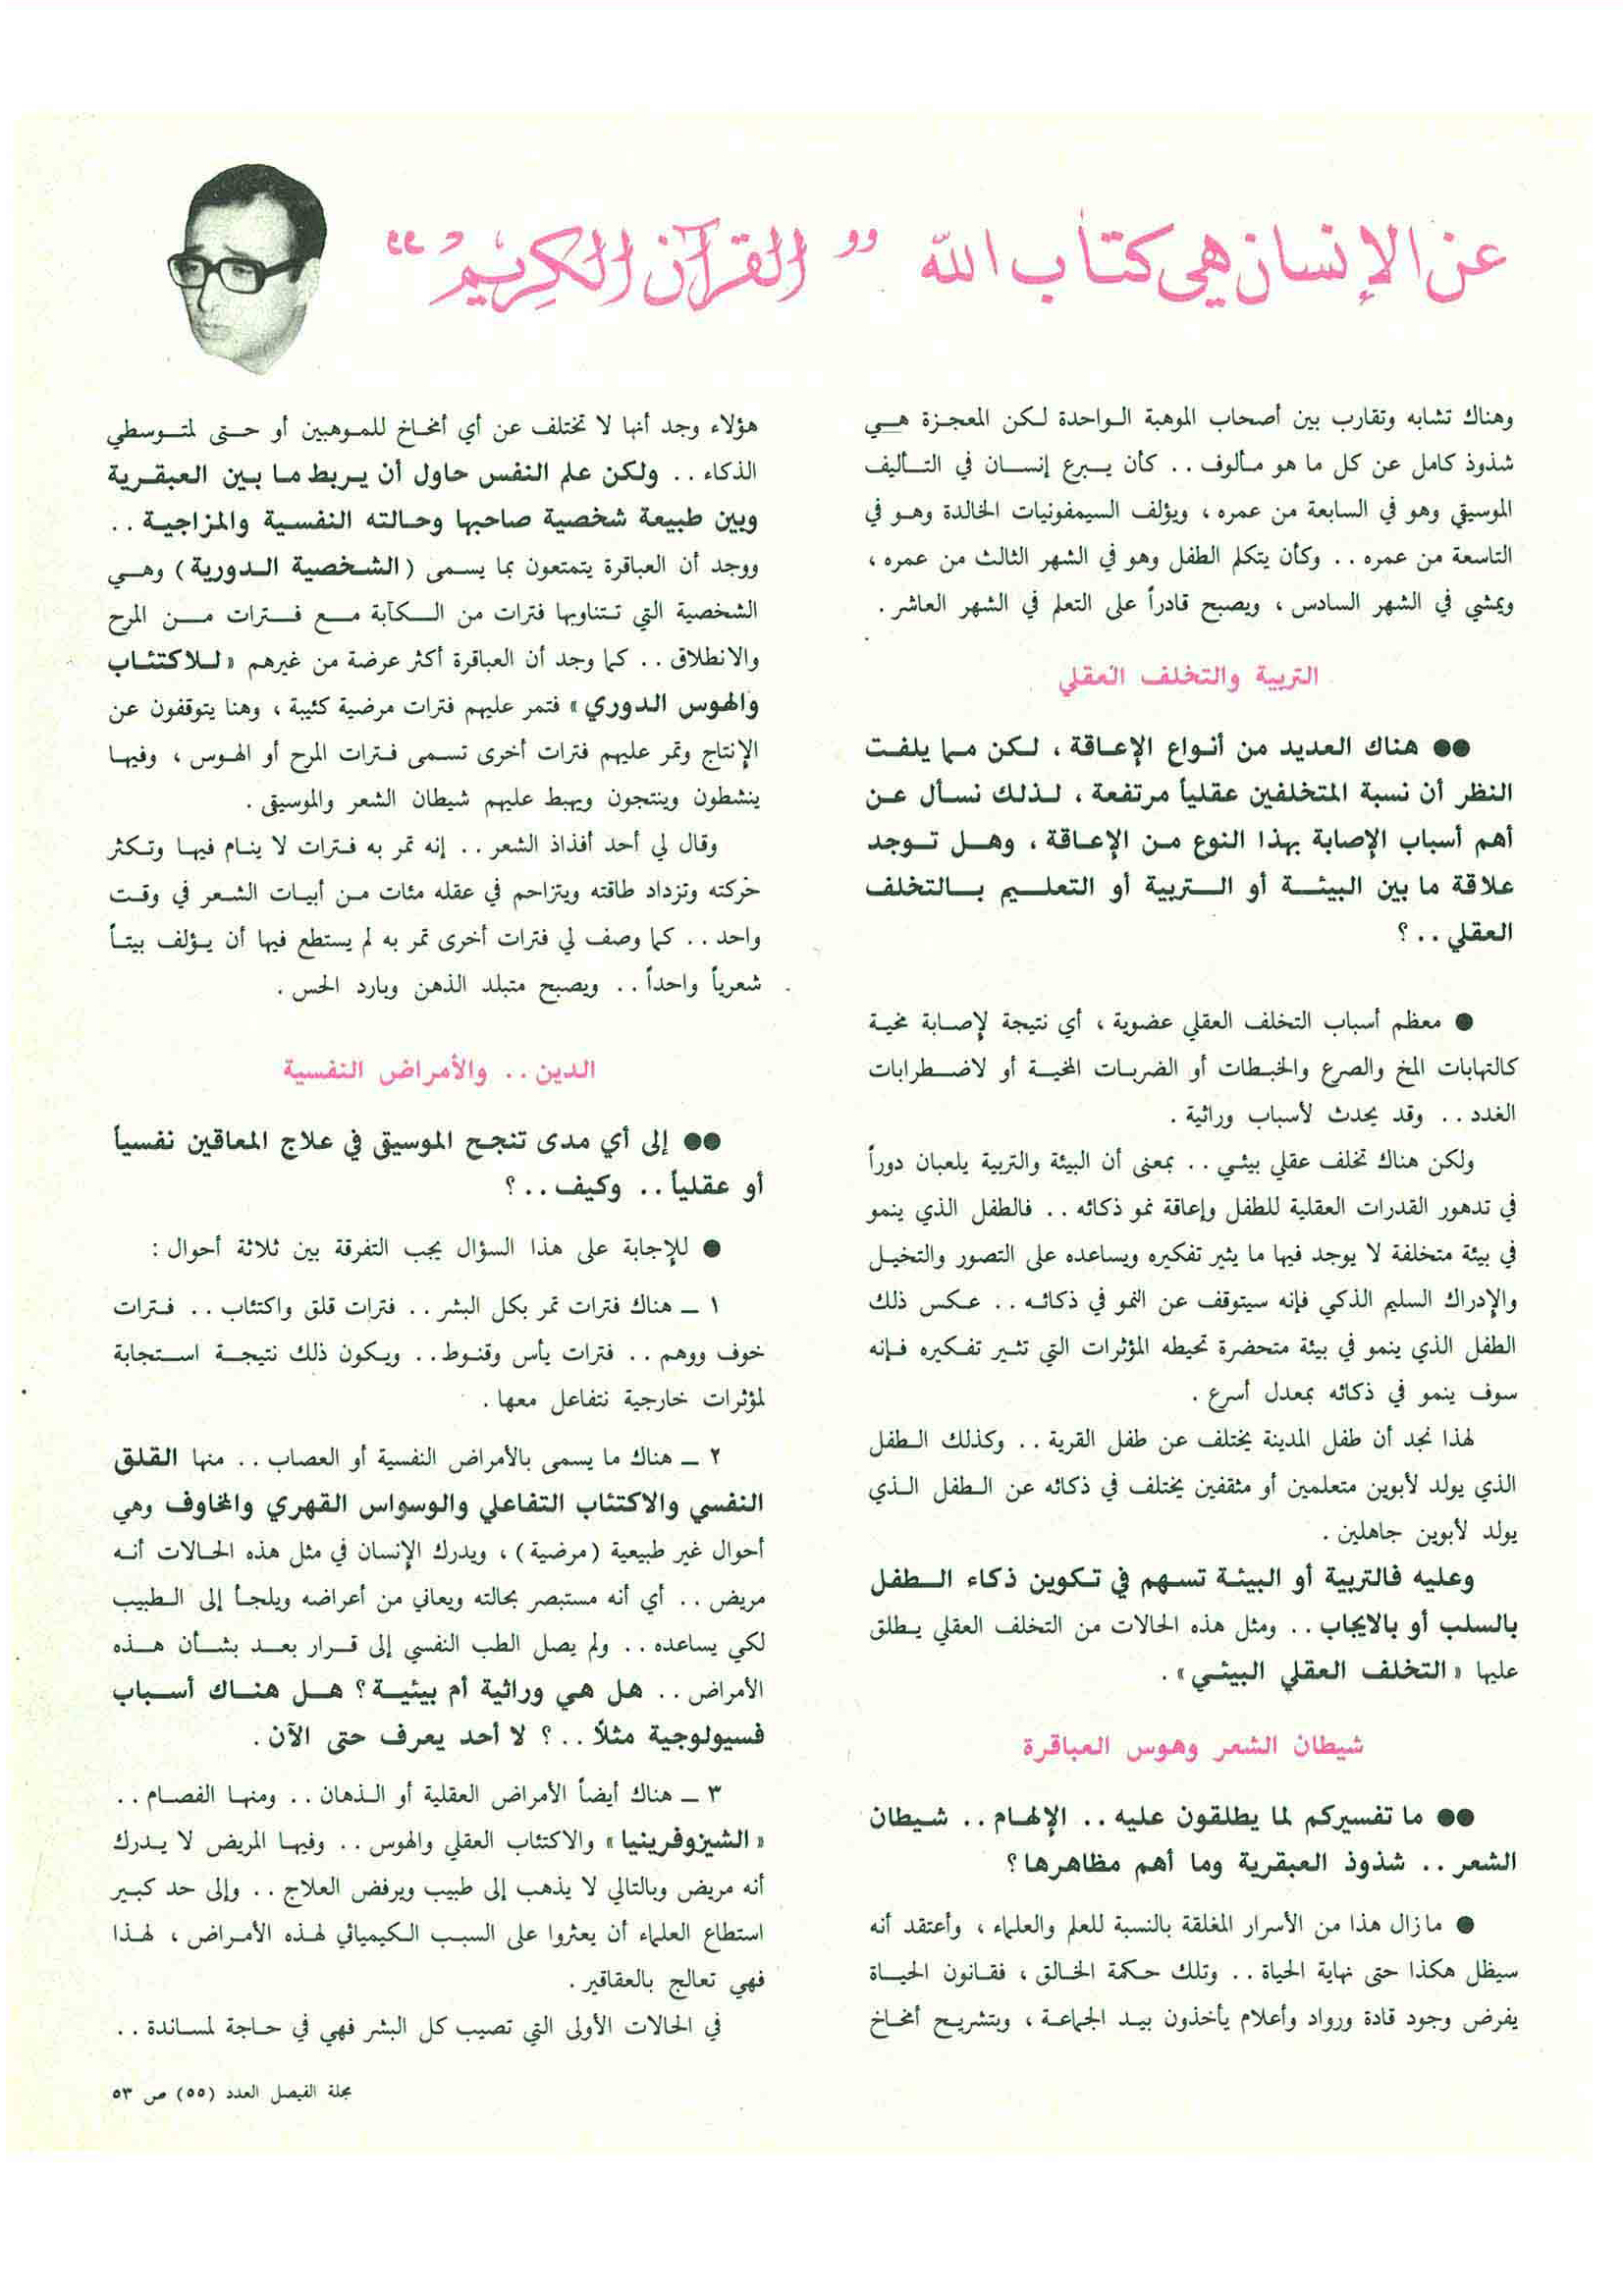 عن الإنسان هي كتاب الله " القرآن الكريم "
وهناك تشابه وتقارب بين أصحاب الموهبة الواحدة لكن المعجزة هي
شذوذ كامل عن كل ما هو مألوف .. كأن يبرع إنسان في التأليف
الموسيقي وهو في السابعة من عمره ، ويؤلف السيمفونيات الخالدة وهو في
التاسعة من عمره .. وكأن يتكلم الطفل وهو في الشهر الثالث من عمره ،
ويمشي في الشهر السادس ، ويصبح قادراً على التعلم في الشهر العاشر .
التربية والتخلف العقلي
●● هناك العديد من أنواع الإعاقة ، لكن مما يلفت
النظر أن نسبة المتخلفين عقلياً مرتفعة ، لذلك نسأل عن
أهم أسباب الإصابة بهذا النوع من الإعاقة ، وهل توجد
علاقة ما بين البيئة أو التربية أو التعليم بالتخلف
العقلي .. ؟
● معظم أسباب التخلف العقلي عضوية ، أي نتيجة لإصابة مخية
كالتهابات المخ والصرع والخبطات أو الضربات المخية أو لاضطرابات
الغدد .. وقد يحدث لأسباب وراثية .
ولكن هناك تخلف عقلي بيئي .. بمعنى أن البيئة والتربية يلعبان دوراً
في تدهور القدرات العقلية للطفل وإعاقة نمو ذكائه .. فالطفل الذي ينمو
في بيئة متخلفة لا يوجد فيها ما يثير تفكيره ويساعده على التصور والتخيل
والإدراك السليم الذكي فإنه سيتوقف عن النمو في ذكائه .. عكس ذلك
الطفل الذي ينمو في بيئة متحضرة تحيطه المؤثرات التي تثير تفكيره فإنه
سوف ينمو في ذكائه بمعدل أسرع .
لهذا نجد أن طفل المدينة يختلف عن طفل القرية .. وكذلك الطفل
الذي يولد لأبوين متعلمين أو مثقفين يختلف في ذكائه عن الطفل الذي
يولد لأبوين جاهلين .
وعليه فالتربية أو البيئة تسهم في تكوين ذكاء الطفل
بالسلب أو بالايجاب .. ومثل هذه الحالات من التخلف العقلي يطلق
عليها « التخلف العقلي البيئي » .
شيطان الشعر وهوس العباقرة
●● ما تفسيركم لما يطلقون عليه .. الإلهام .. شيطان
الشعر .. شذوذ العبقرية وما أهم مظاهرها ؟
● مازال هذا من الأسرار المغلقة بالنسبة للعلم والعلماء ، وأعتقد أنه
سيظل هكذا حتى نهاية الحياة .. وتلك حكمة الخالق ، فقانون الحياة
يفرض وجود قادة ورواد وأعلام يأخذون بيد الجماعة ، وبتشريح أمخاخ
هؤلاء وجد أنها لا تختلف عن أي أمخاخ للموهبين أو حتى لمتوسطي
الذكاء .. ولكن علم النفس حاول أن يربط ما بين العبقرية
وبين طبيعة شخصية صاحبها وحالته النفسية والمزاجية ..
ووجد أن العباقرة يتمتعون بما يسمى ( الشخصية الدورية ) وهي
الشخصية التي تتناوبها فترات من الكآبة مع فترات من المرح
والانطلاق .. كما وجد أن العباقرة أكثر عرضة من غيرهم « للاكتئاب
والهوس الدوري » فتمر عليهم فترات مرضية كئيبة ، وهنا يتوقفون عن
الإنتاج وتمر عليهم فترات أخرى تسمى فترات المرح أو الهوس ، وفيها
ينشطون وينتجون ويهبط عليهم شيطان الشعر والموسيقى .
وقال لي أحد أفذاذ الشعر .. إنه تمر به فترات لا ينام فيها وتكثر
حركته وتزداد طاقته ويتزاحم في عقله مئات من أبيات الشعر في وقت
واحد .. كما وصف لي فترات أخرى تمر به لم يستطع فيها أن يؤلف بيتاً
شعرياً واحداً .. ويصبح متبلد الذهن وبارد الحس .
الدين .. والأمراض النفسية
●● إلى أي مدى تنجح الموسيقى في علاج المعاقين نفسياً
أو عقلياً .. وكيف .. ؟
● للإجابة على هذا السؤال يجب التفرقة بين ثلاثة أحوال :
١ ـ هناك فترات تمر بكل البشر .. فترات قلق واكتئاب .. فترات
خوف ووهم .. فترات يأس وقنوط .. ويكون ذلك نتيجة استجابة
لمؤثرات خارجية نتفاعل معها .
٢ ـ هناك ما يسمى بالأمراض النفسية أو العصاب .. منها القلق
النفسي والاكتئاب التفاعلي والوسواس القهري والمخاوف وهي
أحوال غير طبيعية ( مرضية ) ، ويدرك الإنسان في مثل هذه الحالات أنه
مريض .. أي أنه مستبصر بحالته ويعاني من أعراضه ويلجأ إلى الطبيب
لكي يساعده .. ولم يصل الطب النفسي إلى قرار بعد بشأن هذه
الأمراض .. هل هي وراثية أم بيئية ؟ هل هناك أسباب
فسيولوجية مثلاً .. ؟ لا أحد يعرف حتى الآن .
٣ ـ هناك أيضاً الأمراض العقلية أو الذهان .. ومنها الفصام ..
« الشيزوفرينيا » والاكتئاب العقلي والهوس .. وفيها المريض لا يدرك
أنه مريض وبالتالي لا يذهب إلى طبيب ويرفض العلاج .. وإلى حد كبير
استطاع العلماء أن يعثروا على السبب الكيميائي لهذه الأمراض ، لهذا
فهي تعالج بالعقاقير .
في الحالات الأولى التي تصيب كل البشر فهي في حاجة لمساندة ..
مجلة الفيصل العدد (٥٥) ص ٥٣